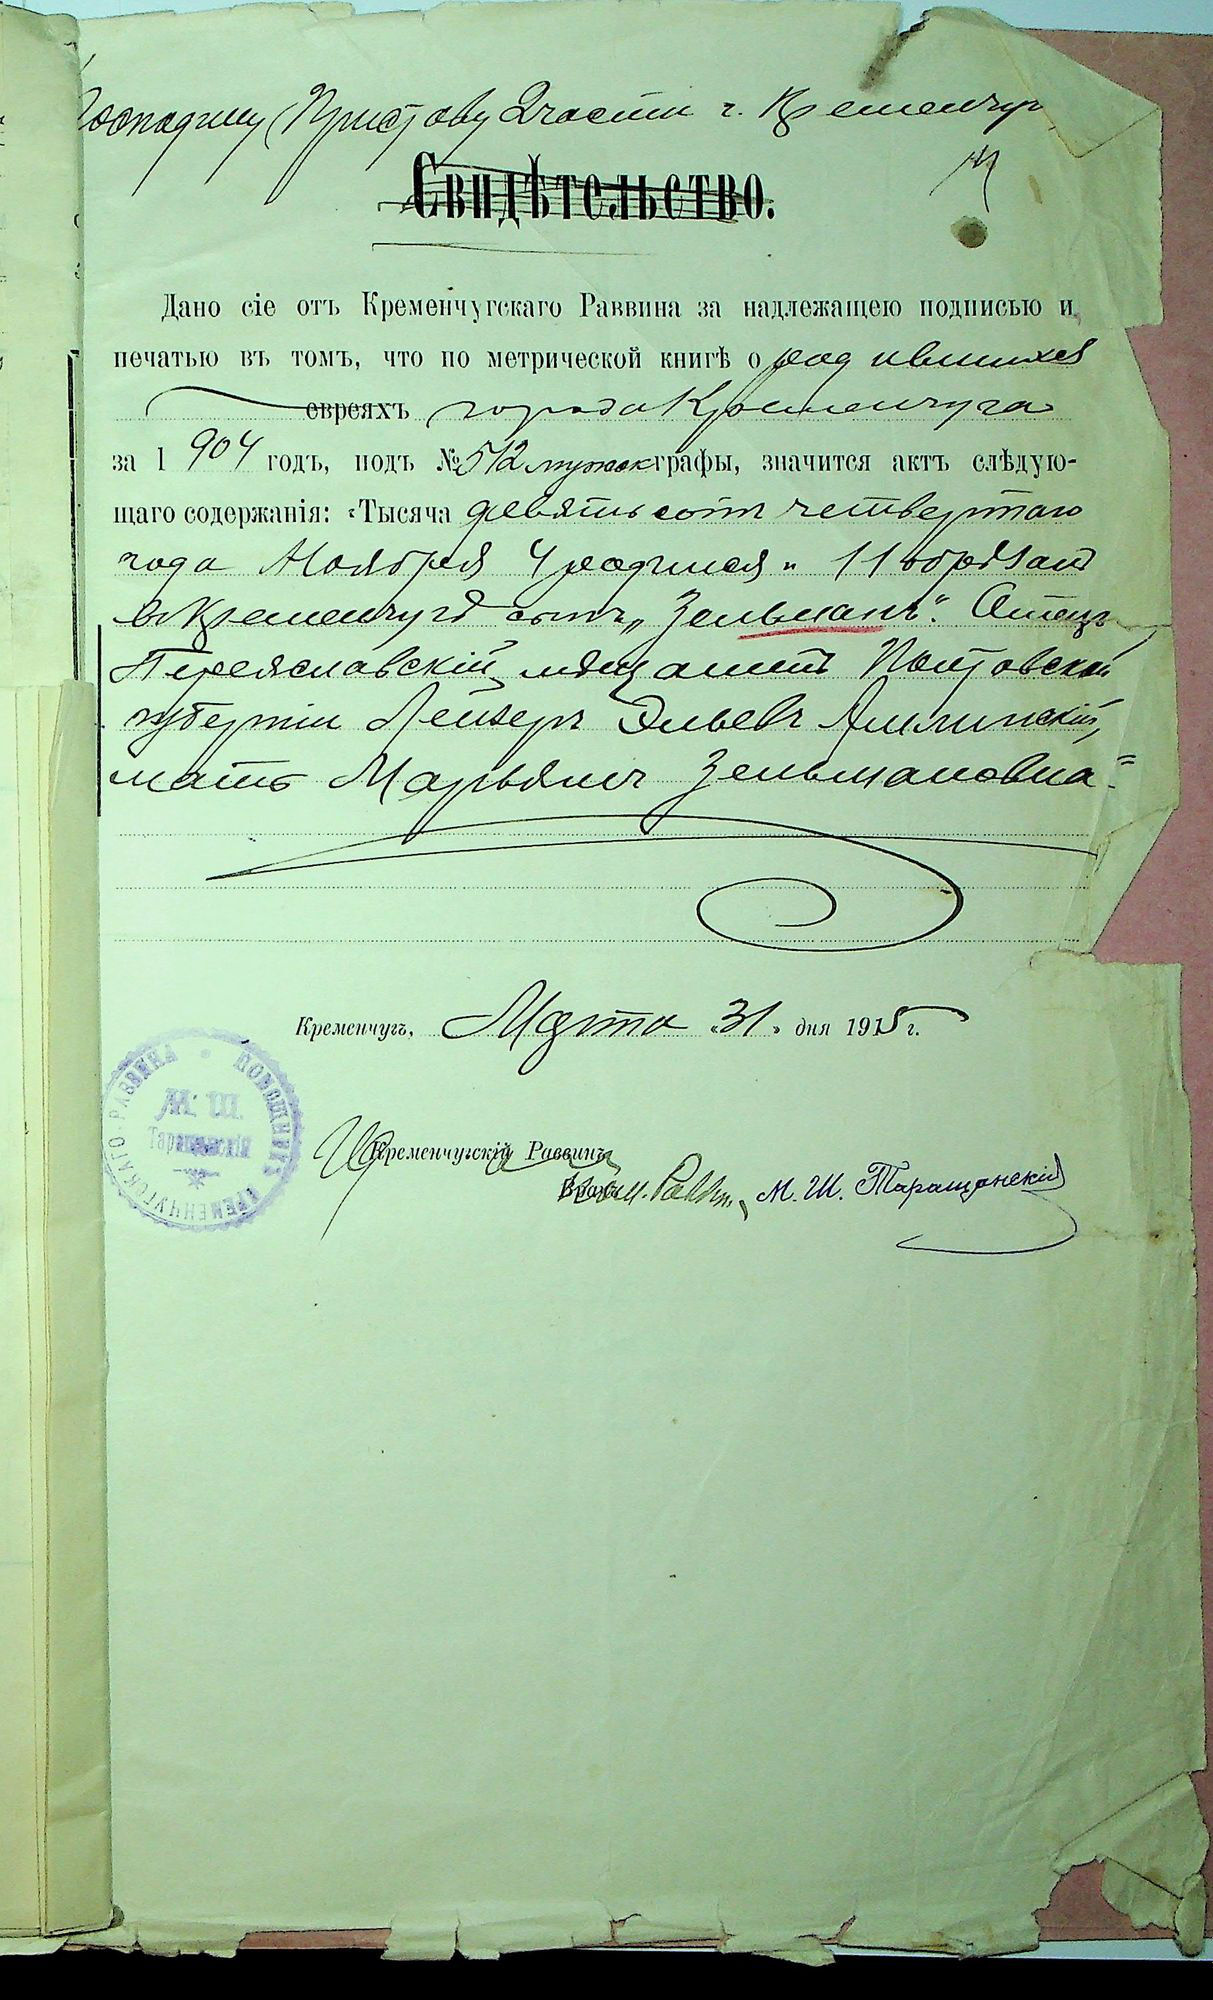 Господину Приставу 2 части г. Кременчуг
Свидѣтельство.
Дано сіе отъ Кременчугскаго Раввина за надлежащею подписью и
печатью въ томъ, что по метрической книгѣ о родившихся
евреяхъ города Кременчуга
за 1904 годъ, подъ № 512 мужск графы, значится актъ слѣдую-
щаго содержанія: «Тысяча девятьсотъ четвертаго
года Ноября 4 родился и 11 обрѣзанъ
въ Кременчугѣ сынъ „Зельманъ“. Отецъ
Переяславскій мѣщанинъ Полтовской
губерніи Лейзеръ Эльевъ
мать Марьямъ Зельмановна“
Кременчугъ, Марта «31» дня 1915 г.
ПОМОЩНИКЪ КРЕМЕНЧУГСКАГО РАВВИНА
М. Ш.
Таращанскій
Кременчугскій Раввинъ
Врачъ Пом. Равв. М. Ш. Таращанскій